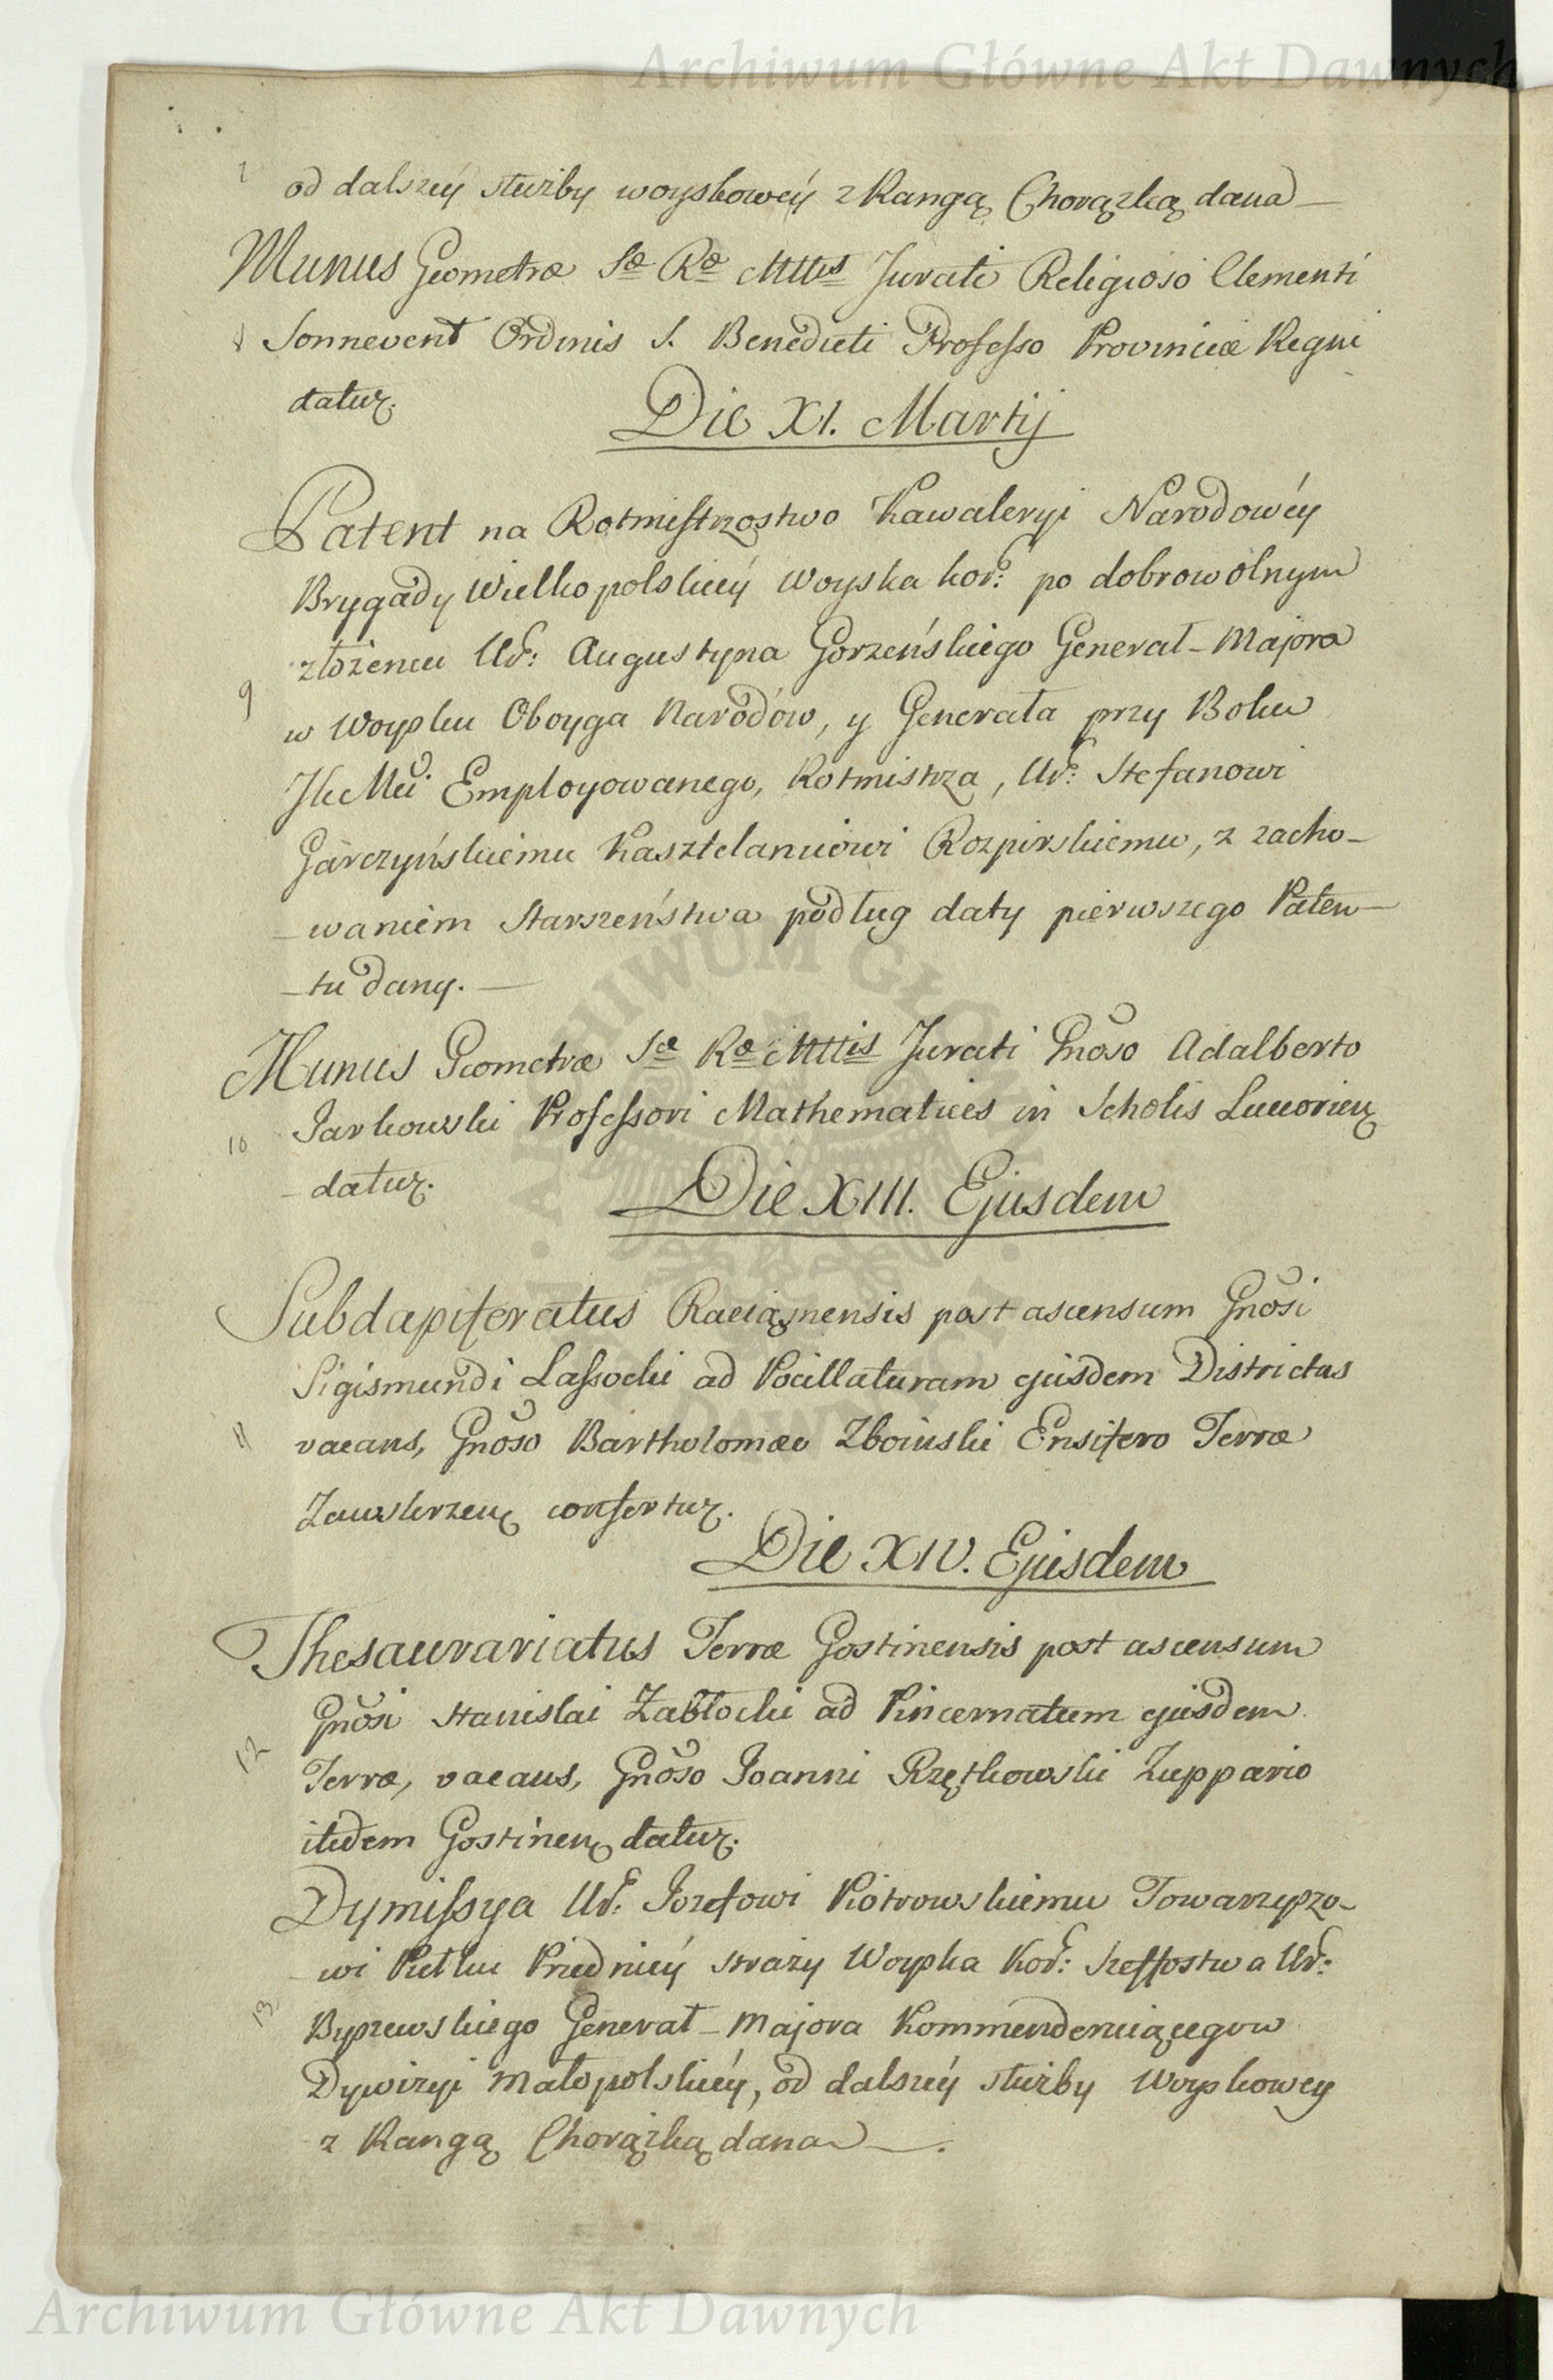 Archiwum Główne Akt Dawnych
7 od dalszéy służby woyskowéy z Rangą Chorążką dana —
Munus Geometræ Sæ Ræ Mttis Jurati Religioso Clementi
8 Sonnevent Ordinis S. Benedicti Professo Provinciæ Regni
datur.
Die XI. Martij
Patent na Rotmistrzostwo Kawaleryi Narodowéy
Brygady Wielkopolskiéy Woyska Kor: po dobrowolnym
złożeniu Ur: Augustyna Gorzeńskiego Generał-Majora
9 w Woysku Oboyga Narodów, y Generała przy Boku
JKcMci Employowanego, Rotmistrza, Ur: Stefanowi
Garczyńskiemu Kasztelanicowi Rozpirskiemu, z zacho-
-waniem Starszeństwa podług daty pierwszego Paten-
-tu dany. —
Munus Geometræ Sæ Ræ Mttis Jurati Gnoso Adalberto
10 Jarkowski Professori Mathematices in Scholis Luceorien
- datur.
Die XIII. Ejusdem
Subdapiferatus Raciąznensis post ascensum Gnosi
Sigismundi Lassocki ad Pocillaturam ejusdem Districtus
11 vacans, Gnoso Bartholomæo Zboinski Ensifero Terræ
Zawskrzen confertur.
Die XIV. Ejusdem
Thesaurariatus Terræ Gostinensis post ascensum
Gnosi Stanislai Zabłocki ad Pincernatum ejusdem
12 Terræ, vacans, Gnoso Joanni Rzętkowski Zuppario
itidem Gostinen datur.
Dymissya Ur: Jozefowi Piotrowskiemu Towarzyszo-
-wi Pułku Przedniéy Straży Woyska Kor: Szeffostwa Ur:
13 Byszewskiego Generał-Majora Kommenderuiącego
Dywizyi Małopolskiéy, od dalszéy służby Woyskowey
z Rangą Chorążką dana —.
Archiwum Główne Akt Dawnych